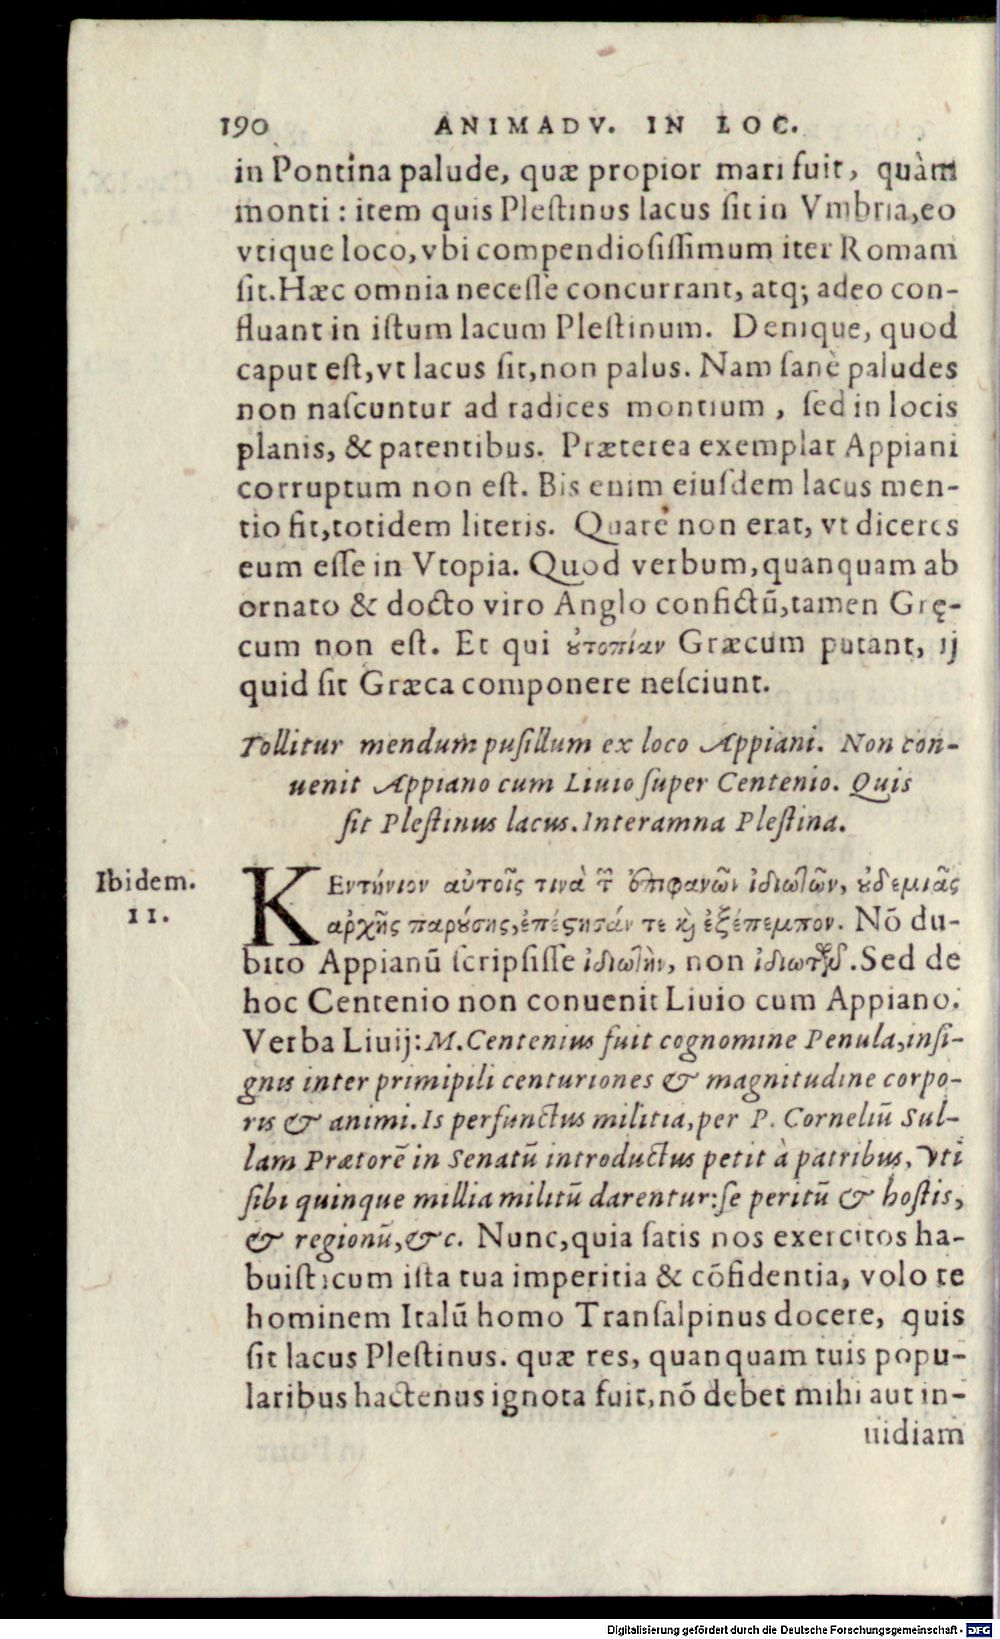 190 ANIMADV. IN LOC.
in Pontina palude, quæ propior mari fuit, quàm
monti : item quis Plestinus lacus sit in Vmbria, eo
vtique loco, vbi compendiosissimum iter Romam
sit. Hæc omnia necesse concurrant, atq; adeo con-
fluant in istum lacum Plestinum. Denique, quod
caput est, vt lacus sit, non palus. Nam sanè paludes
non nascuntur ad radices montium , sed in locis
planis, & patentibus. Præterea exemplar Appiani
corruptum non est. Bis enim eiusdem lacus men-
tio fit, totidem literis. Quare non erat, vt diceres
eum esse in Vtopia. Quod verbum, quanquam ab
ornato & docto viro Anglo confictū, tamen Grę-
cum non est. Et qui ȣτοπίαν Græcum putant, ij
quid sit Græca componere nesciunt.
Tollitur mendum pusillum ex loco Appiani. Non con-
uenit Appiano cum Liuio super Centenio. Quis
sit Plestinus lacus. Interamna Plestina.
Ibidem.
11.
ΚΕντήνιον αὐτοῖς τινὰ τῶν ἐπιφανῶν ἰδιωτῶν, ȣδεμιᾶς
αρχῆς παρȣσης, ἐπέστησάν τε κ̀ ἐξέπεμπον. Nō du-
bito Appianū scripsisse ἰδιωτὴν, non ἰδιωτῶν. Sed de
hoc Centenio non conuenit Liuio cum Appiano.
Verba Liuij: M. Centenius fuit cognomine Penula, insi-
gnis inter primipili centuriones & magnitudine corpo-
ris & animi. Is perfunctus militia, per P. Corneliū Sul-
lam Prætorē in Senatū introductus petit à patribus, vti
sibi quinque millia militū darentur: se peritū & hostis,
& regionū, &c. Nunc, quia satis nos exercitos ha-
buisti cum ista tua imperitia & cōfidentia, volo te
hominem Italū homo Transalpinus docere, quis
sit lacus Plestinus. quæ res, quanquam tuis popu-
laribus hactenus ignota fuit, nō debet mihi aut in-
uidiam
Digitalisierung gefördert durch die Deutsche Forschungsgemeinschaft - DFG